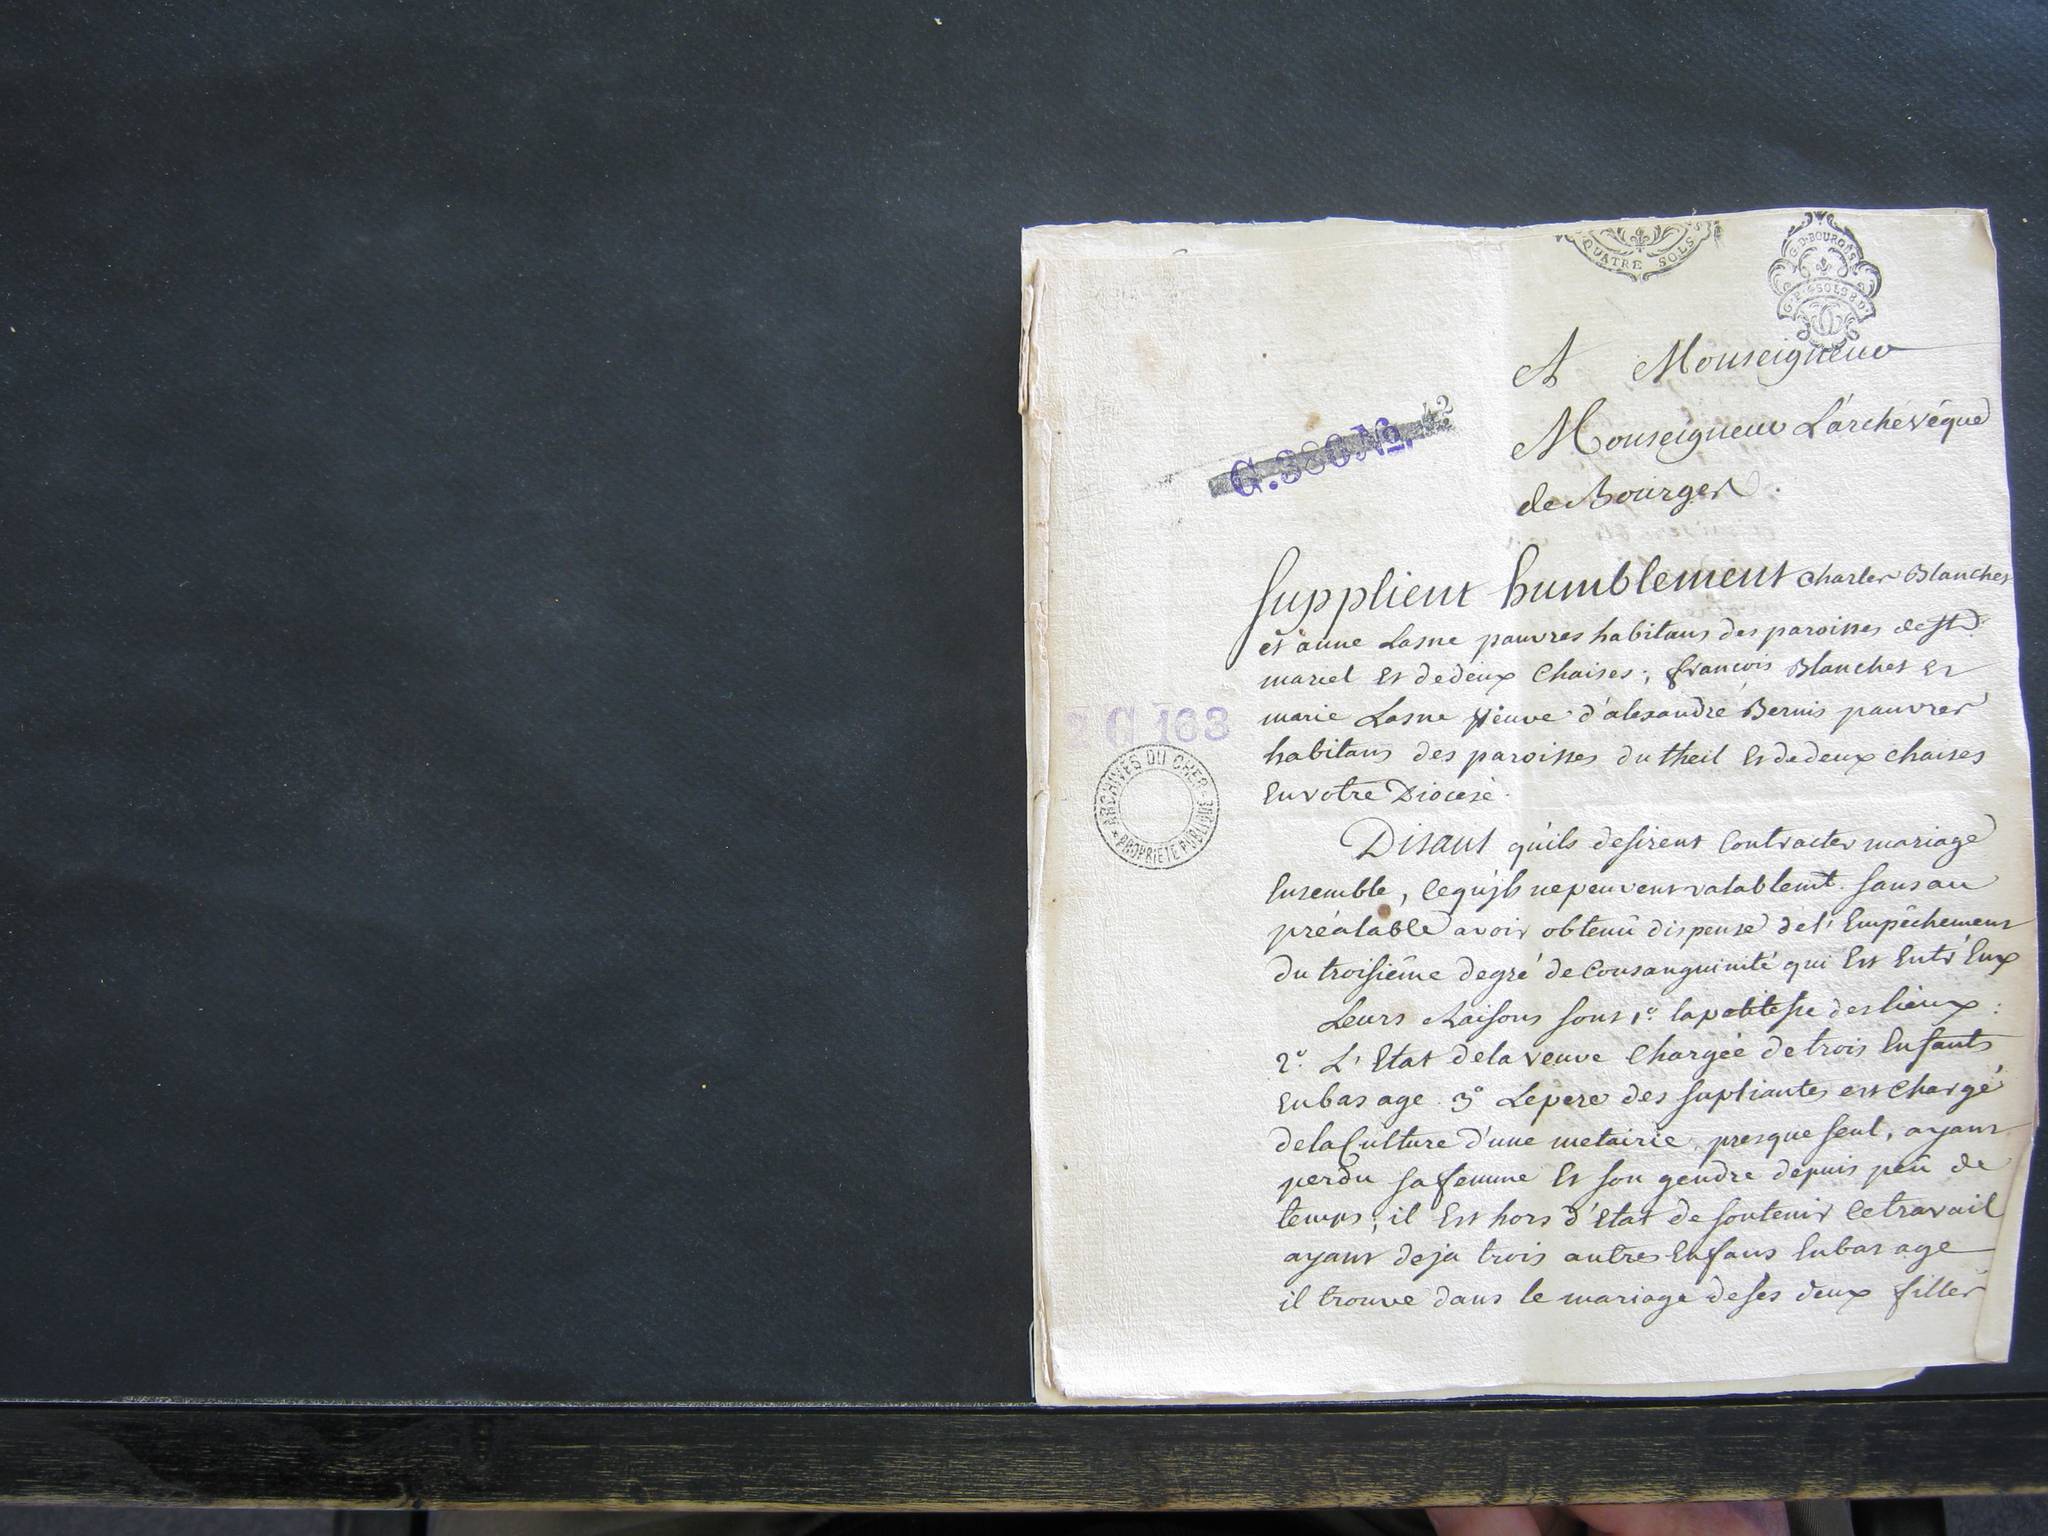 QUATRE SOLS
G. D. BOURGES
G. P. 6 SOLS 8 D.
A Monseigneur
Monseigneur L'archévêque
de Bourges.
G. 380 No. 42
Supplient humblement Charles Blanchet
et anne Lasne pauvres habitans des paroisses de St
marcel Et de deux Chaises; françois Blanchet Et
marie Lasne veuve d'alexandre Bernis pauvres
habitans des paroisses du theil Et de deux chaises
En votre Diocése.
2 G 163
ARCHIVES DU CHER
PROPRIÉTÉ PUBLIQUE
Disant qu'ils desirent Contracter mariage
Ensemble, Ce qu'jls ne peuvent valablemt. sans au
préalable avoir obtenû dispense de l'Empêchement
du troisiême degré de Consanguinité qui Est Entr'Eux
Leurs Raisons sont 1º. la petitesse des lieux:
2º. L'Etat de la veuve Chargée de trois Enfants
En bas age. 3º Le pere des supliantes est Chargé
de la Culture d'une metairie, presque seul, ayant
perdu sa femme Et son gendre depuis peû de
temps; il Est hors d'Etat de soutenir Ce travail
ayant deja trois autres Enfans En bas age
il trouve dans le mariage de ses deux filles